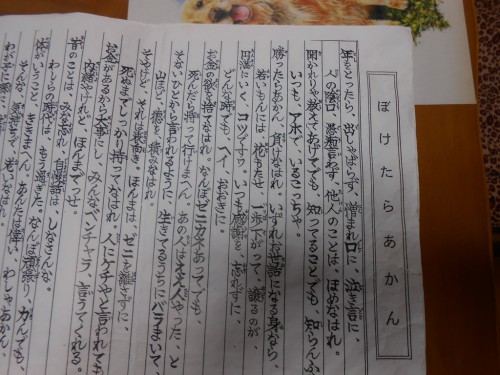 ぼけたらあかん
年をとったら、出しゃばらず、憎まれ口に、泣き言に、
人の陰口、愚痴言わず、他人のことは、ほめなはれ。
聞かれりゃ教えてあげてでも、知ってることでも、知らんふ
いつも、アホで、いるこっちゃ。
勝ったらあかん、負けなはれ。いずれお世話になる身なら、
若いもんには、花もたせ、一歩下がって、譲るのが、
円満にいく、コツですわ。いつも感謝を、忘れずに、
どんな時でも、ヘイ、おおきに。
お金の欲を、捨てなはれ。なんぼゼニカネあってでも、
死んだら持って行けまへん。あの人はええ人やった、と
そないひとから、言われるように、生きてるうちにバラまいて、
山ほど、徳を、積みなはれ。
そやけど、それは表向き。ほんまは、ゼニを離さずに、
死ぬまでしっかり持ってなはれ。人にケチやと言われても
お金があるから、大事にし、みんなベンチャラ、言うてくれる。
内緒やけれど、ほんまでっせ。
昔のことは、みな忘れ、自慢話は、しなさんな。
わしらの時代は、もう過ぎた。なんぼ頑張り、力んでも、
体がいうこと、ききまへん。あんたは偉い、わしゃあかん、
そんな、気持ちで、おりなはれ。